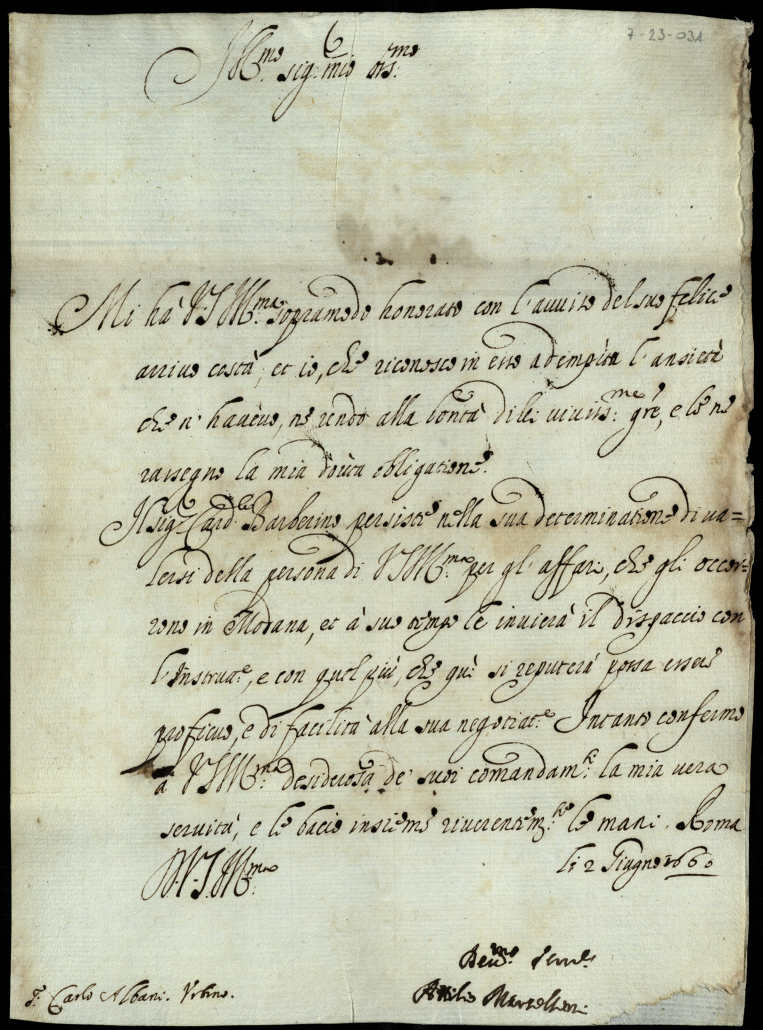 7-23-031
Ill.mo sig: mio oss:mo
Mi hà V.S. Ill.ma sopramodo honorato con l'avviso del suo felice
arrivo costà, et io, che riconosco in esso adempita l'ansietà
che n'havevo, ne rendo alla bontà di lei viviss:me gre, e le ne
rassegno la mia dovuta obligatione.
Il sig.r Card.le Barberino persiste nella sua determinatione di va=
lersi della persona di V.S. Ill.ma per gl'affari, che gli occor=
rono in Modana, et à suo tempo le invierà il dispaccio con
l'Instrutt.e, e con quel più, che quì si reputerà possa essere
proficuo, e di facilità alla sua negotiat.e Intanto confermo
à V.S. Ill.ma desiderosa de' suoi comandam.ti la mia vera
servitù, e le bacio insieme riverentem.te le mani. Roma
li 2 Giugno 1660
D.V.S. Ill.ma
Dev.mo serv.e
Attilio Marcellini
S. Carlo Albani. Urbino.